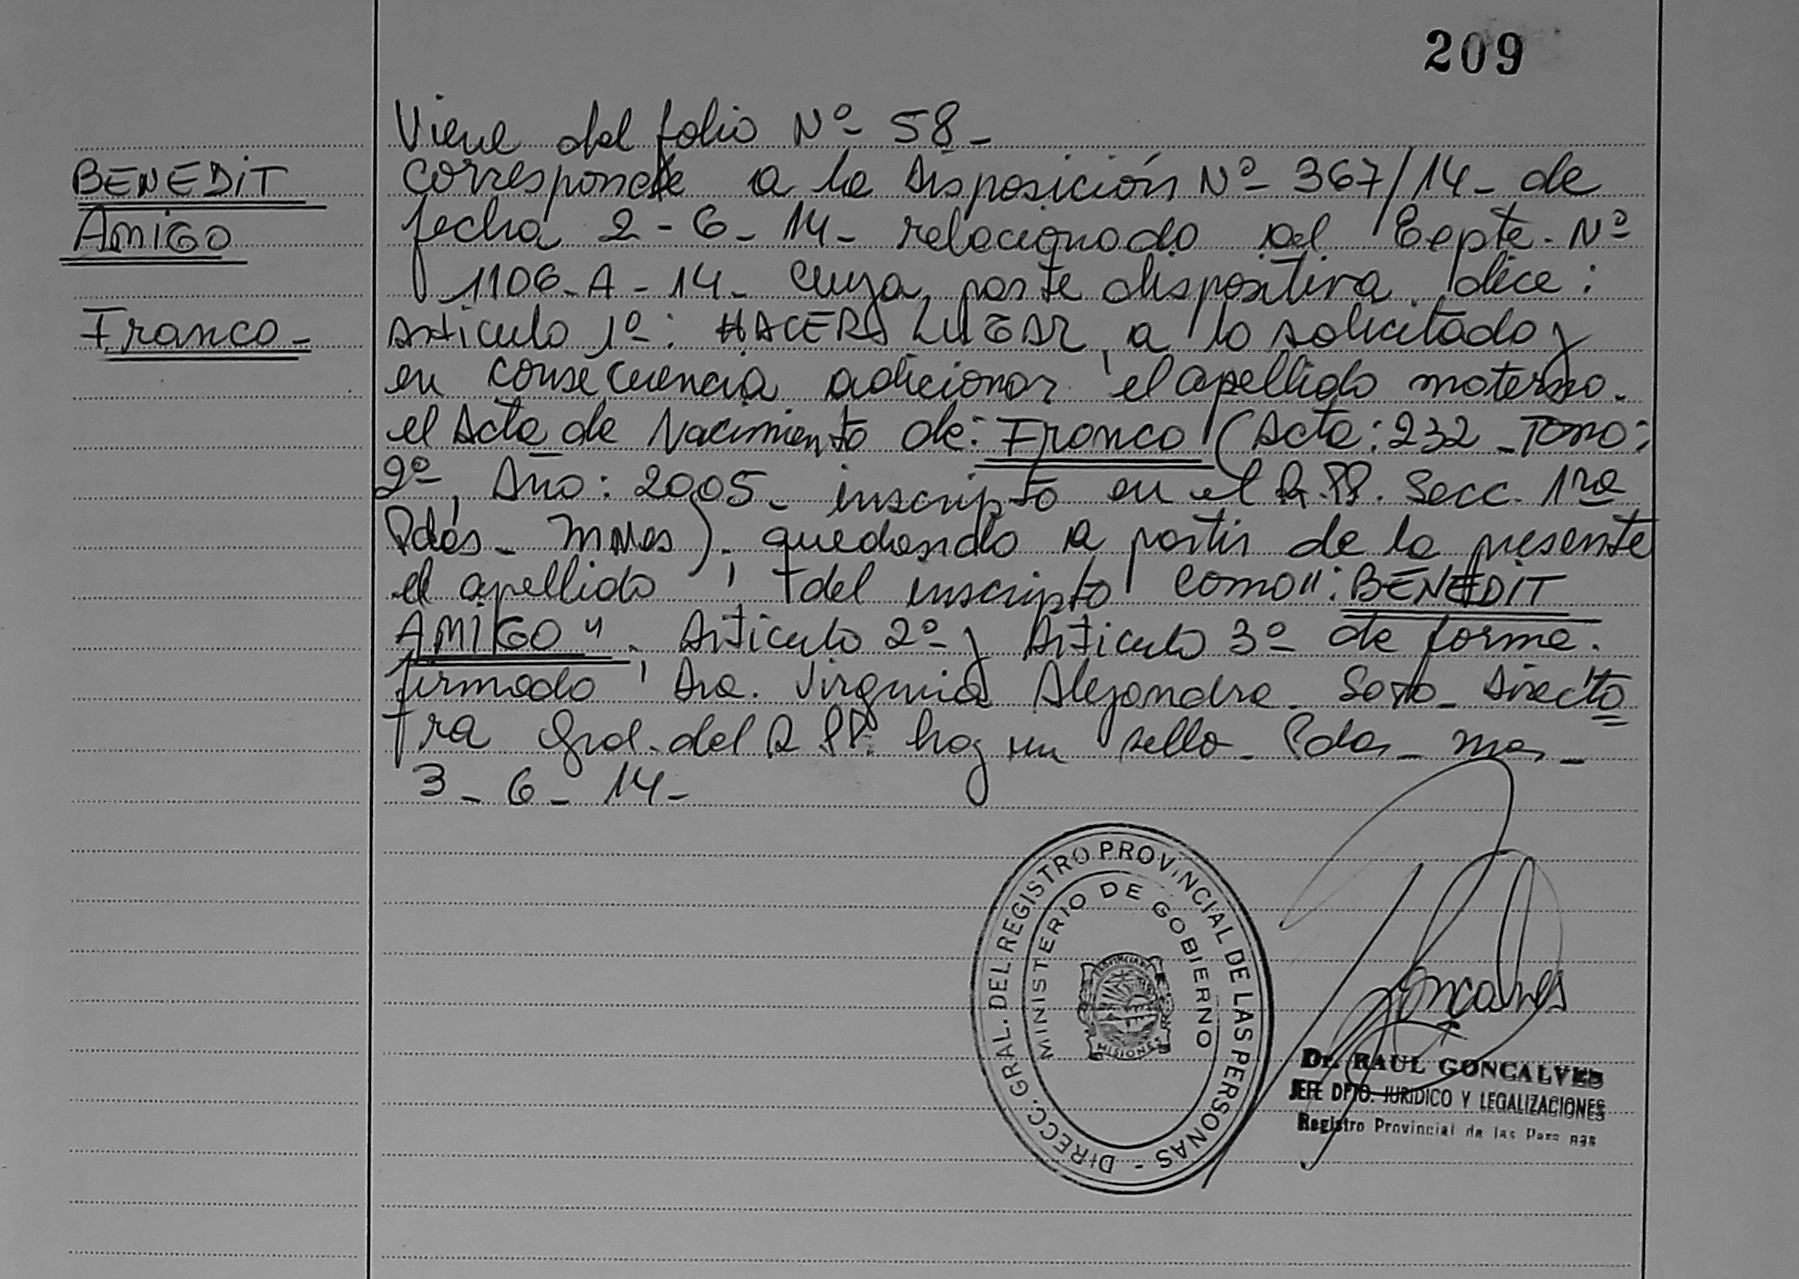 209
Viene del folio Nº 58-
BENEDIT
corresponde a la Disposición Nº 367/14- de
Amigo
fecha 2-6-14- relacionado al Expte. Nº
1106-A-14- cuya parte dispositiva dice:
Franco-
Articulo 1º: HACERS LUGAR, a lo solicitado y
en consecuencia adicionar el apellido materno.
el Acta de Nacimiento de: Franco (Acta: 232 - Tomo:
2º, Año: 2005- inscripto en el R.PP. Secc. 1ra
Pdas- Mnes). quedando a partir de la presente
el apellido del inscripto como": BENEDIT
AMIGO". Articulo 2º y Articulo 3º de forma.
firmado Dra. Virginia Alejandra Soto- Directo
ra Gral. del R.PP. hay un sello- Pdas- Mnes-
3-6-14-
DIRECC. GRAL. DEL REGISTRO PROVINCIAL DE LAS PERSONAS -
MINISTERIO DE GOBIERNO
MISIONES
Goncalves
Dr. RAUL GONCALVES
JEFE DPTO. JURIDICO Y LEGALIZACIONES
Registro Provincial de las Personas